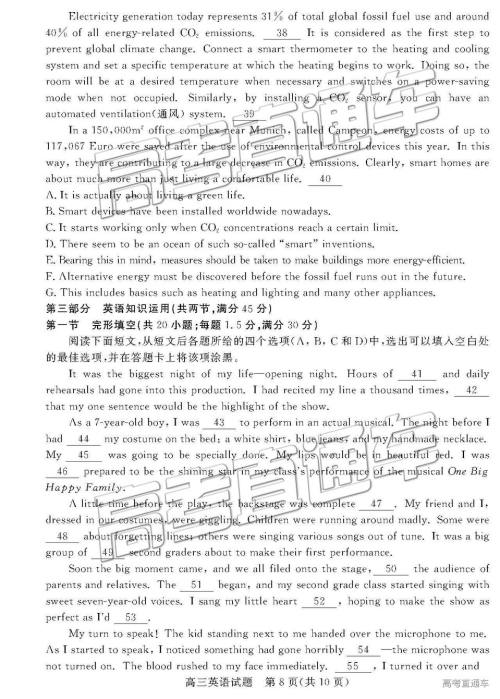 Electricity generation today represents 31% of total global fossil fuel use and around
40% of all energy-related CO₂ emissions. 38 It is considered as the first step to
prevent global climate change. Connect a smart thermometer to the heating and cooling
system and set a specific temperature at which the heating begins to work. Doing so, the
room will be at a desired temperature when necessary and switches on a power-saving
mode when not occupied. Similarly, by installing a CO₂ sensor, you can have an
automated ventilation(通风) system. 39
In a 150,000m² office complex near Munich, called Campeon, energy costs of up to
117,067 Euro were saved after the use of environmental control devices this year. In this
way, they are contributing to a large decrease in CO₂ emissions. Clearly, smart homes are
about much more than just living a comfortable life. 40
A. It is actually about living a green life.
B. Smart devices have been installed worldwide nowadays.
C. It starts working only when CO₂ concentrations reach a certain limit.
D. There seem to be an ocean of such so-called "smart" inventions.
E. Bearing this in mind, measures should be taken to make buildings more energy-efficient.
F. Alternative energy must be discovered before the fossil fuel runs out in the future.
G. This includes basics such as heating and lighting and many other appliances.
第三部分 英语知识运用(共两节,满分 45 分)
第一节 完形填空(共 20 小题;每题 1.5 分,满分 30 分)
阅读下面短文,从短文后各题所给的四个选项(A, B, C 和 D)中,选出可以填入空白处
的最佳选项,并在答题卡上将该项涂黑。
It was the biggest night of my life—opening night. Hours of 41 and daily
rehearsals had gone into this production. I had recited my line a thousand times, 42
that my one sentence would be the highlight of the show.
As a 7-year-old boy, I was 43 to perform in an actual musical. The night before I
had 44 my costume on the bed; a white shirt, blue jeans, and my handmade necklace.
My 45 was going to be specially done. My lips would be in beautiful red. I was
46 prepared to be the shining star in my class's performance of the musical One Big
Happy Family.
A little time before the play, the backstage was complete 47 . My friend and I,
dressed in our costumes, were giggling. Children were running around madly. Some were
48 about forgetting lines; others were singing various songs out of tune. It was a big
group of 49 second graders about to make their first performance.
Soon the big moment came, and we all filed onto the stage, 50 the audience of
parents and relatives. The 51 began, and my second grade class started singing with
sweet seven-year-old voices. I sang my little heart 52 , hoping to make the show as
perfect as I'd 53 .
My turn to speak! The kid standing next to me handed over the microphone to me.
As I started to speak, I noticed something had gone horribly 54 —the microphone was
not turned on. The blood rushed to my face immediately. 55 , I turned it over and
高三英语试题 第 8 页(共 10 页)
高考直通车
高考直通车
高考直通车